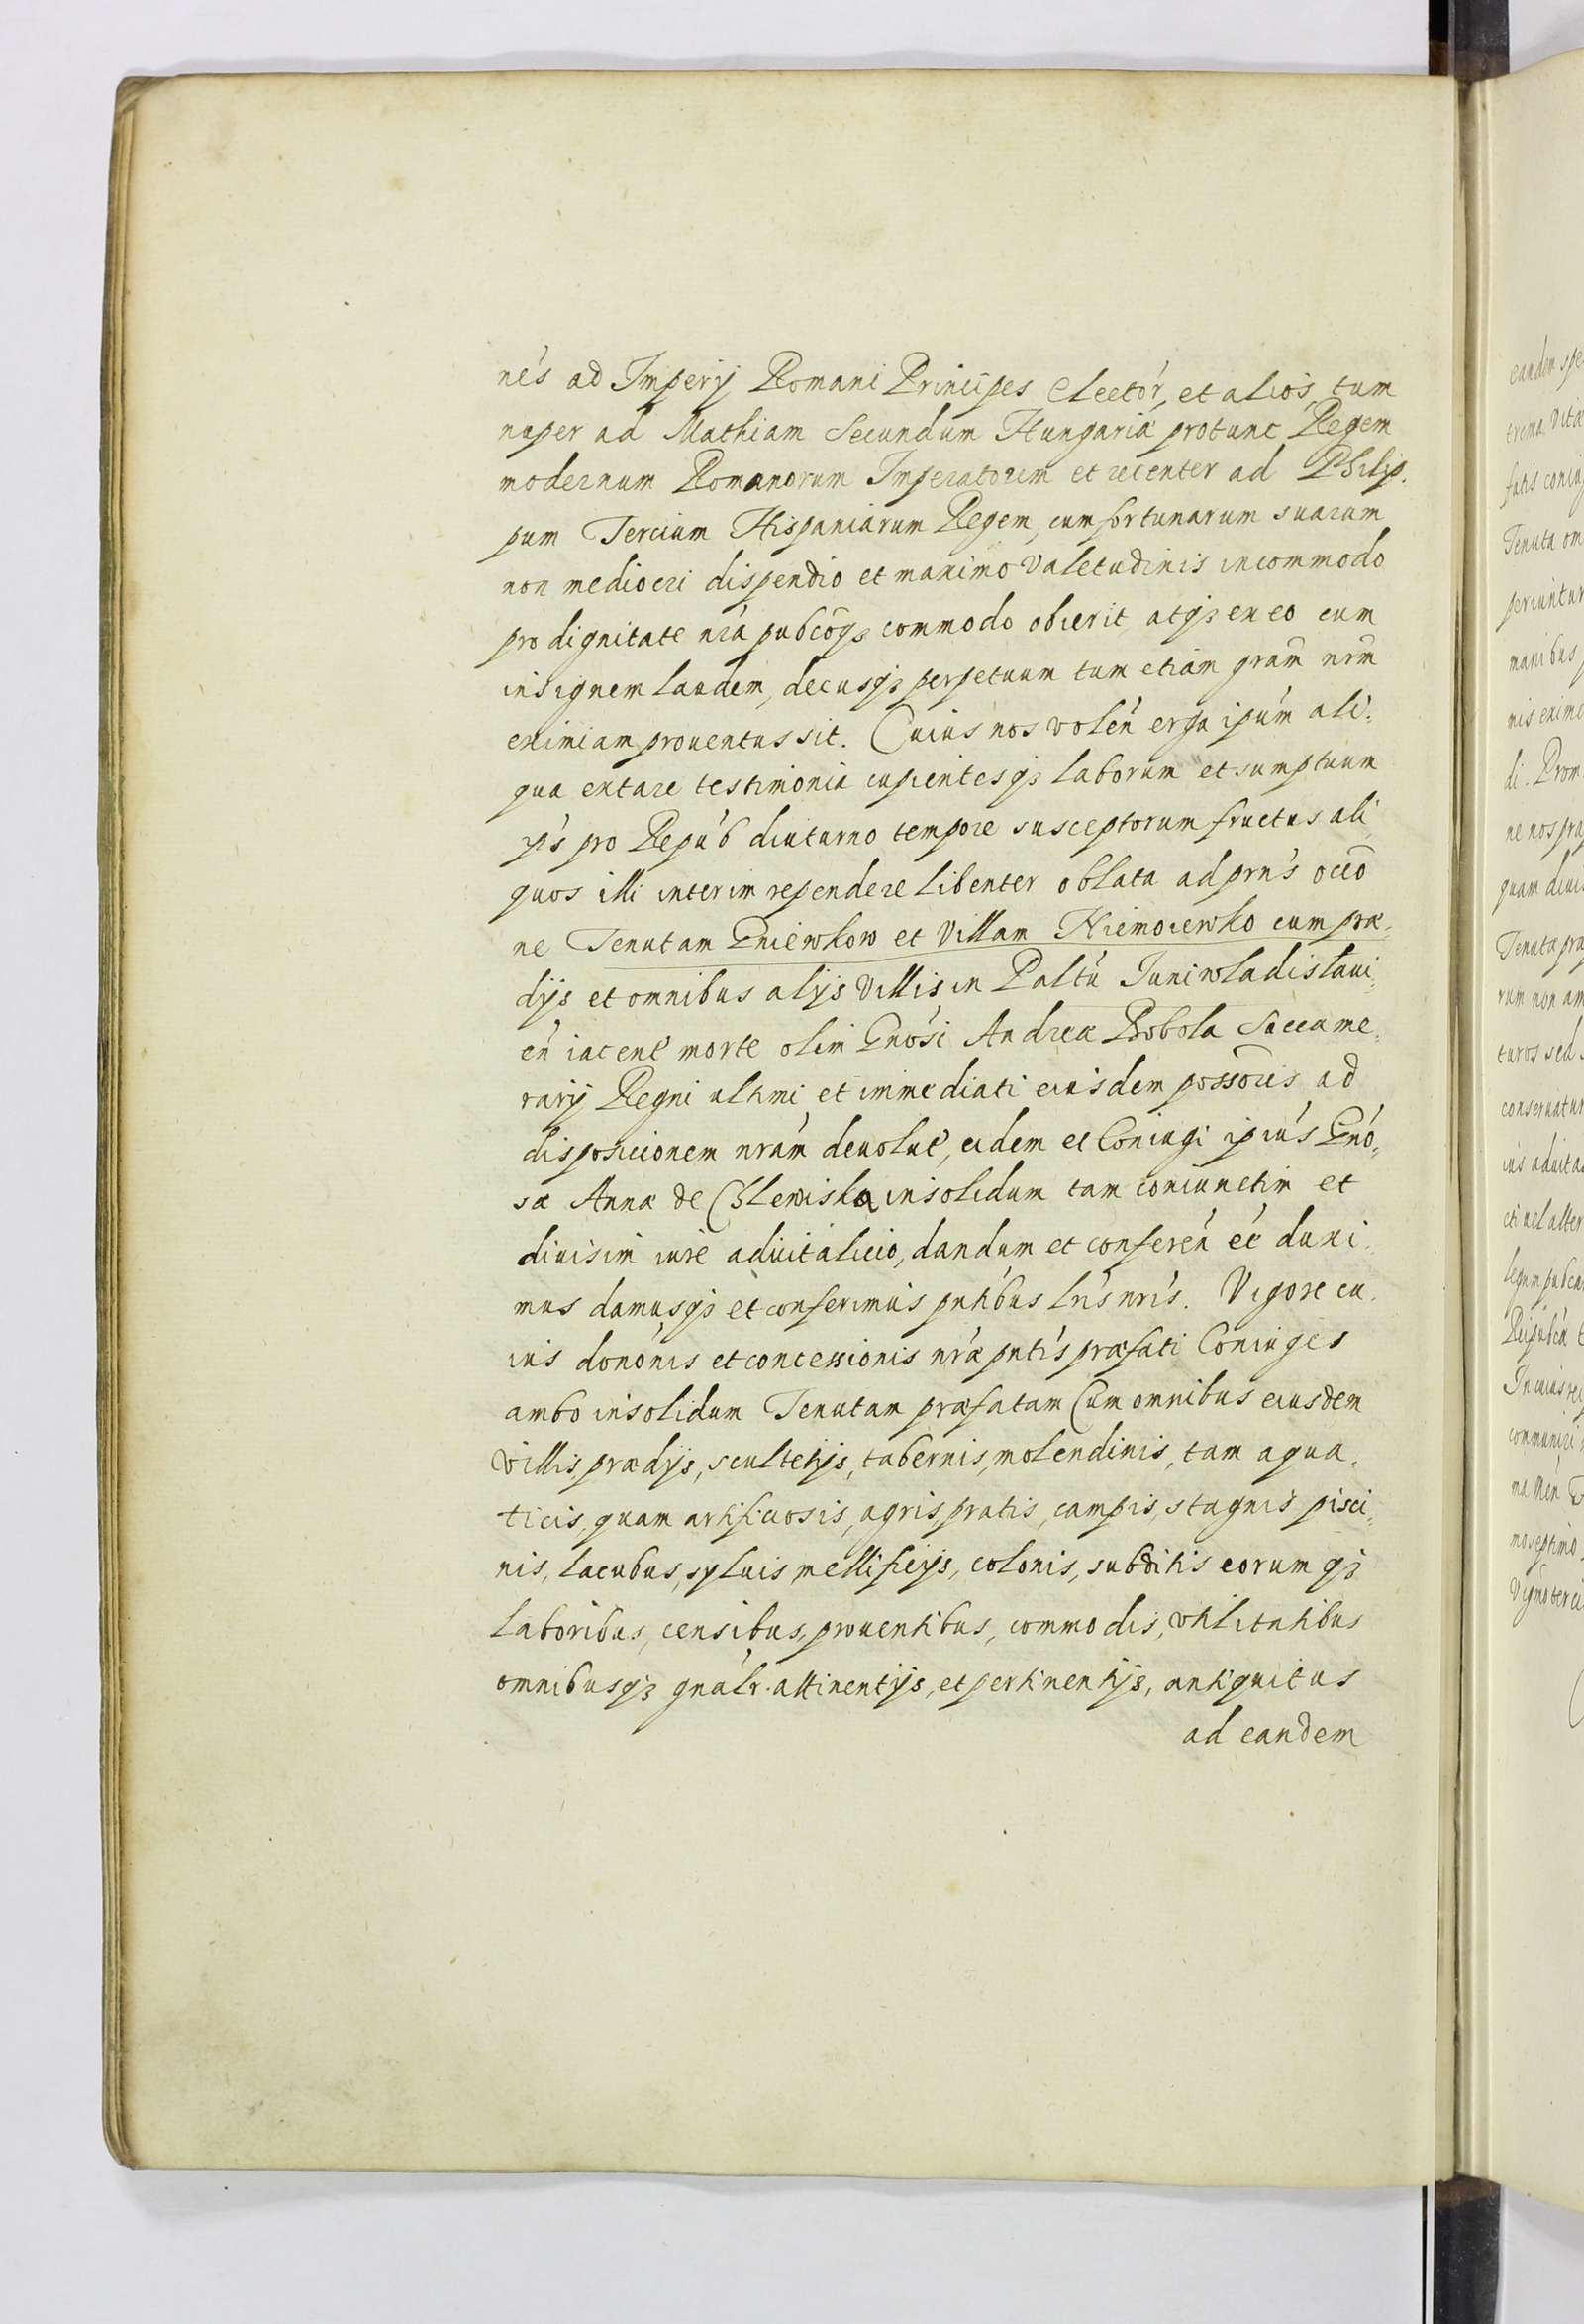 nes ad Imperij Romani Principes Elector, et alios, tum
nuper ad Mathiam Secundum Hungariæ protunc Regem
modernum Romanorum Imperatorem et recenter ad Philip.
pum Tercium Hispaniarum Regem, cum fortunarum suarum
non mediocri dispendio et maximo Valetudinis incommodo
pro dignitate nra pubcoq₃ commodo obierit, atq₃ ex eo cum
insignem laudem, decusq₃ perpetuum tum etiam gram nrm
eximiam prouentus sit. Cuius nos volen erga ipum ali:
qua extare testimonia cupientesq₃ laborum et sumptuum
ips pro Repub diuturno tempore susceptorum fructus ali
quos illi interim rependere libenter oblata ad prns occo
ne Tenutam Gniewkow et Villam Niemoiewko cum præ:
dijs et omnibus alijs Villis in Paltu Juniwladislaui:
en iacent morte olim Gnosi Andreæ Bobola Succame:
rarij Regni ultimi et immediati eiusdem possoris ad
disposicionem nram deuolut, eidem et Coniugi ipius Gno:
sæ Annæ de Chlewiska insolidum tam coniunctim et
diuisim iure aduitalicio, dandum et conferen ee duxi.
mus damusq₃ et conferimus pntibus lris nris. Vigore cu.
ius dononis et concessionis nræ pntis præfati Coniuges
ambo insolidum Tenutam præfatam Cum omnibus eiusdem
Villis, prædijs, scultetijs, tabernis, molendinis, tam aqua.
ticis, quam artificiosis, agris, pratis, campis, stagnis pisci:
nis, lacubus, syluis, mellificijs, colonis, subditis eorumq₃
laboribus, censibus, prouentibus, commodis, vtilitatibus
omnibusq₃ gnalr. attinentijs, et pertinentijs, antiquitus
ad eandem